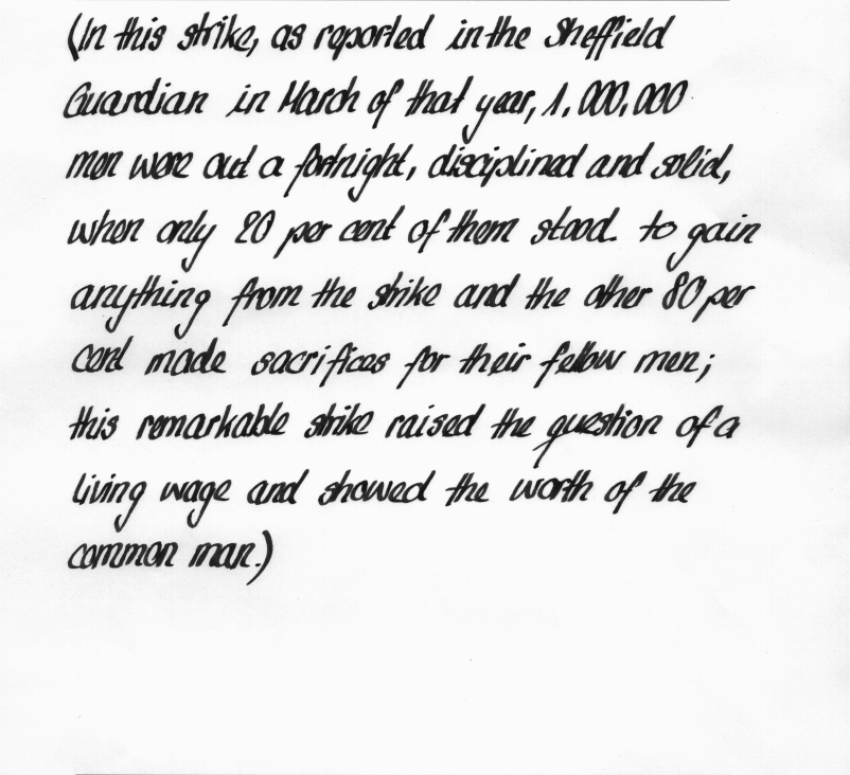 (In this strike, as reported in the Sheffield
Guardian in March of that year, 1,000,000
men were out a fortnight, disciplined and solid,
when only 20 per cent of them stood. to gain
anything from the strike and the other 80 per
cent made sacrifices for their fellow men;
this remarkable strike raised the question of a
living wage and showed the worth of the
common man.)